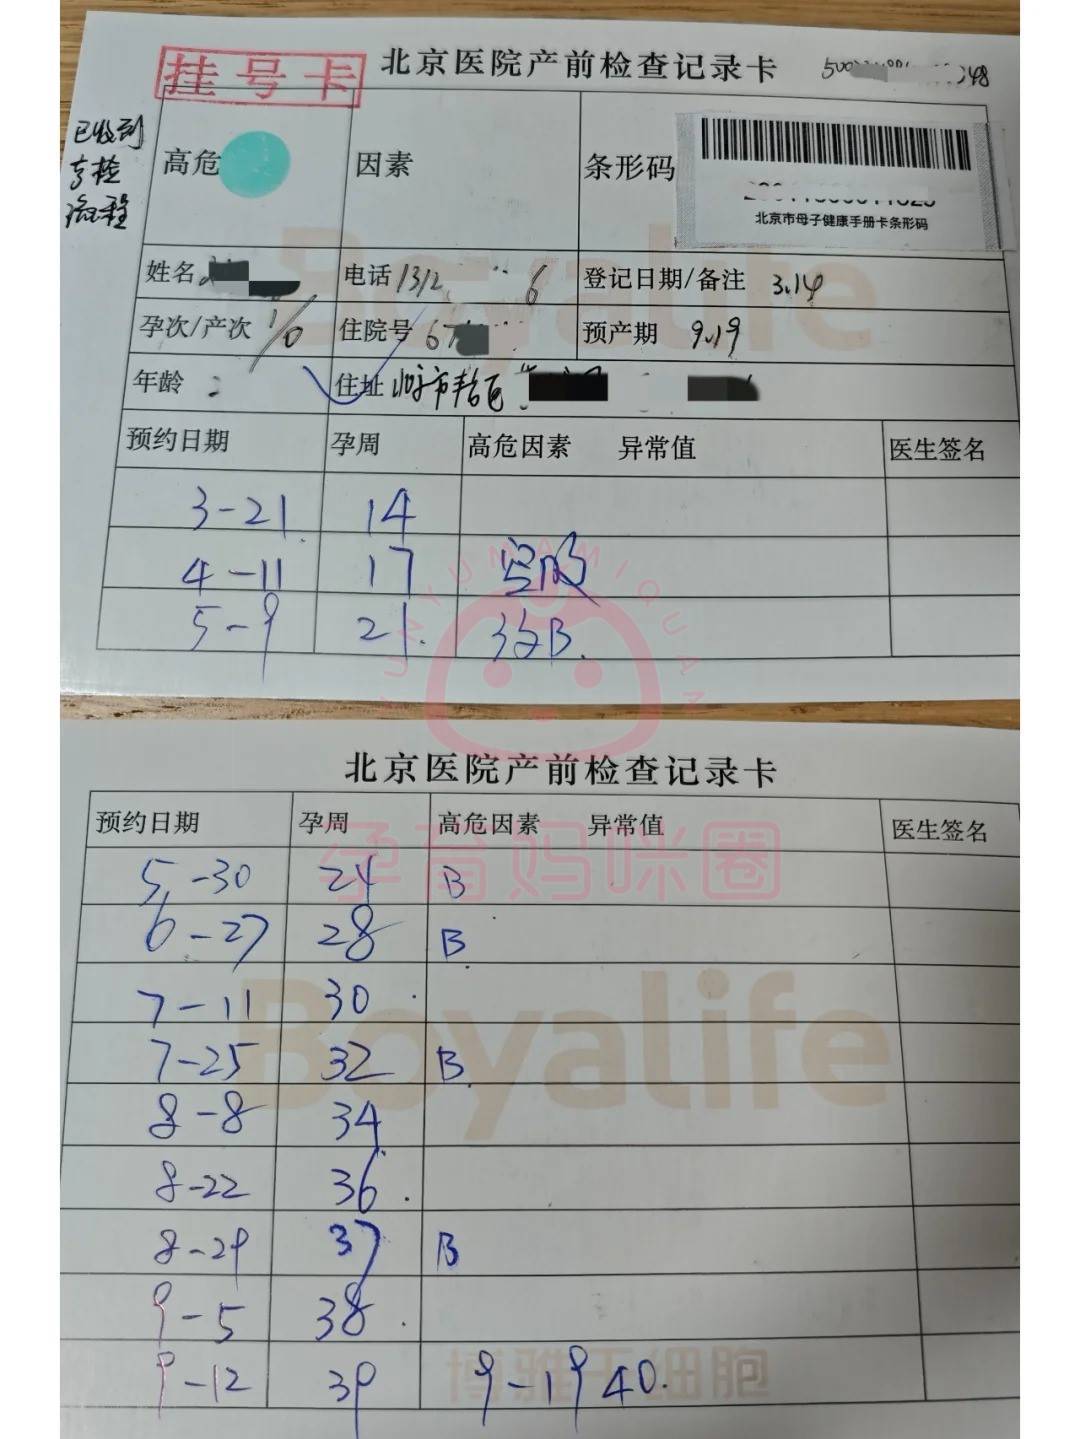 挂号卡 北京医院产前检查记录卡
已收到
产检
流程
高危 因素 条形码
北京市母子健康手册卡条形码
姓名 电话 登记日期/备注 3.14
孕次/产次 1/0 住院号 预产期 9.19
年龄 住址
预约日期 孕周 高危因素 异常值 医生签名
3-21 14
4-11 17 空腹
5-9 21. B.
YUNYUMAMIQUAN
北京医院产前检查记录卡
预约日期 孕周 高危因素 异常值 医生签名
孕育妈咪圈
5-30 24 B
6-27 28 B
7-11 30
Boyalife
7-25 32 B
8-8 34
8-22 36.
8-29 37 B
9-5 38.
9-12 39 9-19 40.
博雅干细胞